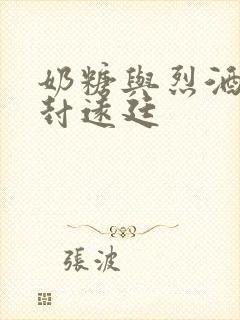 奶糖與烈酒
封遠廷
張波